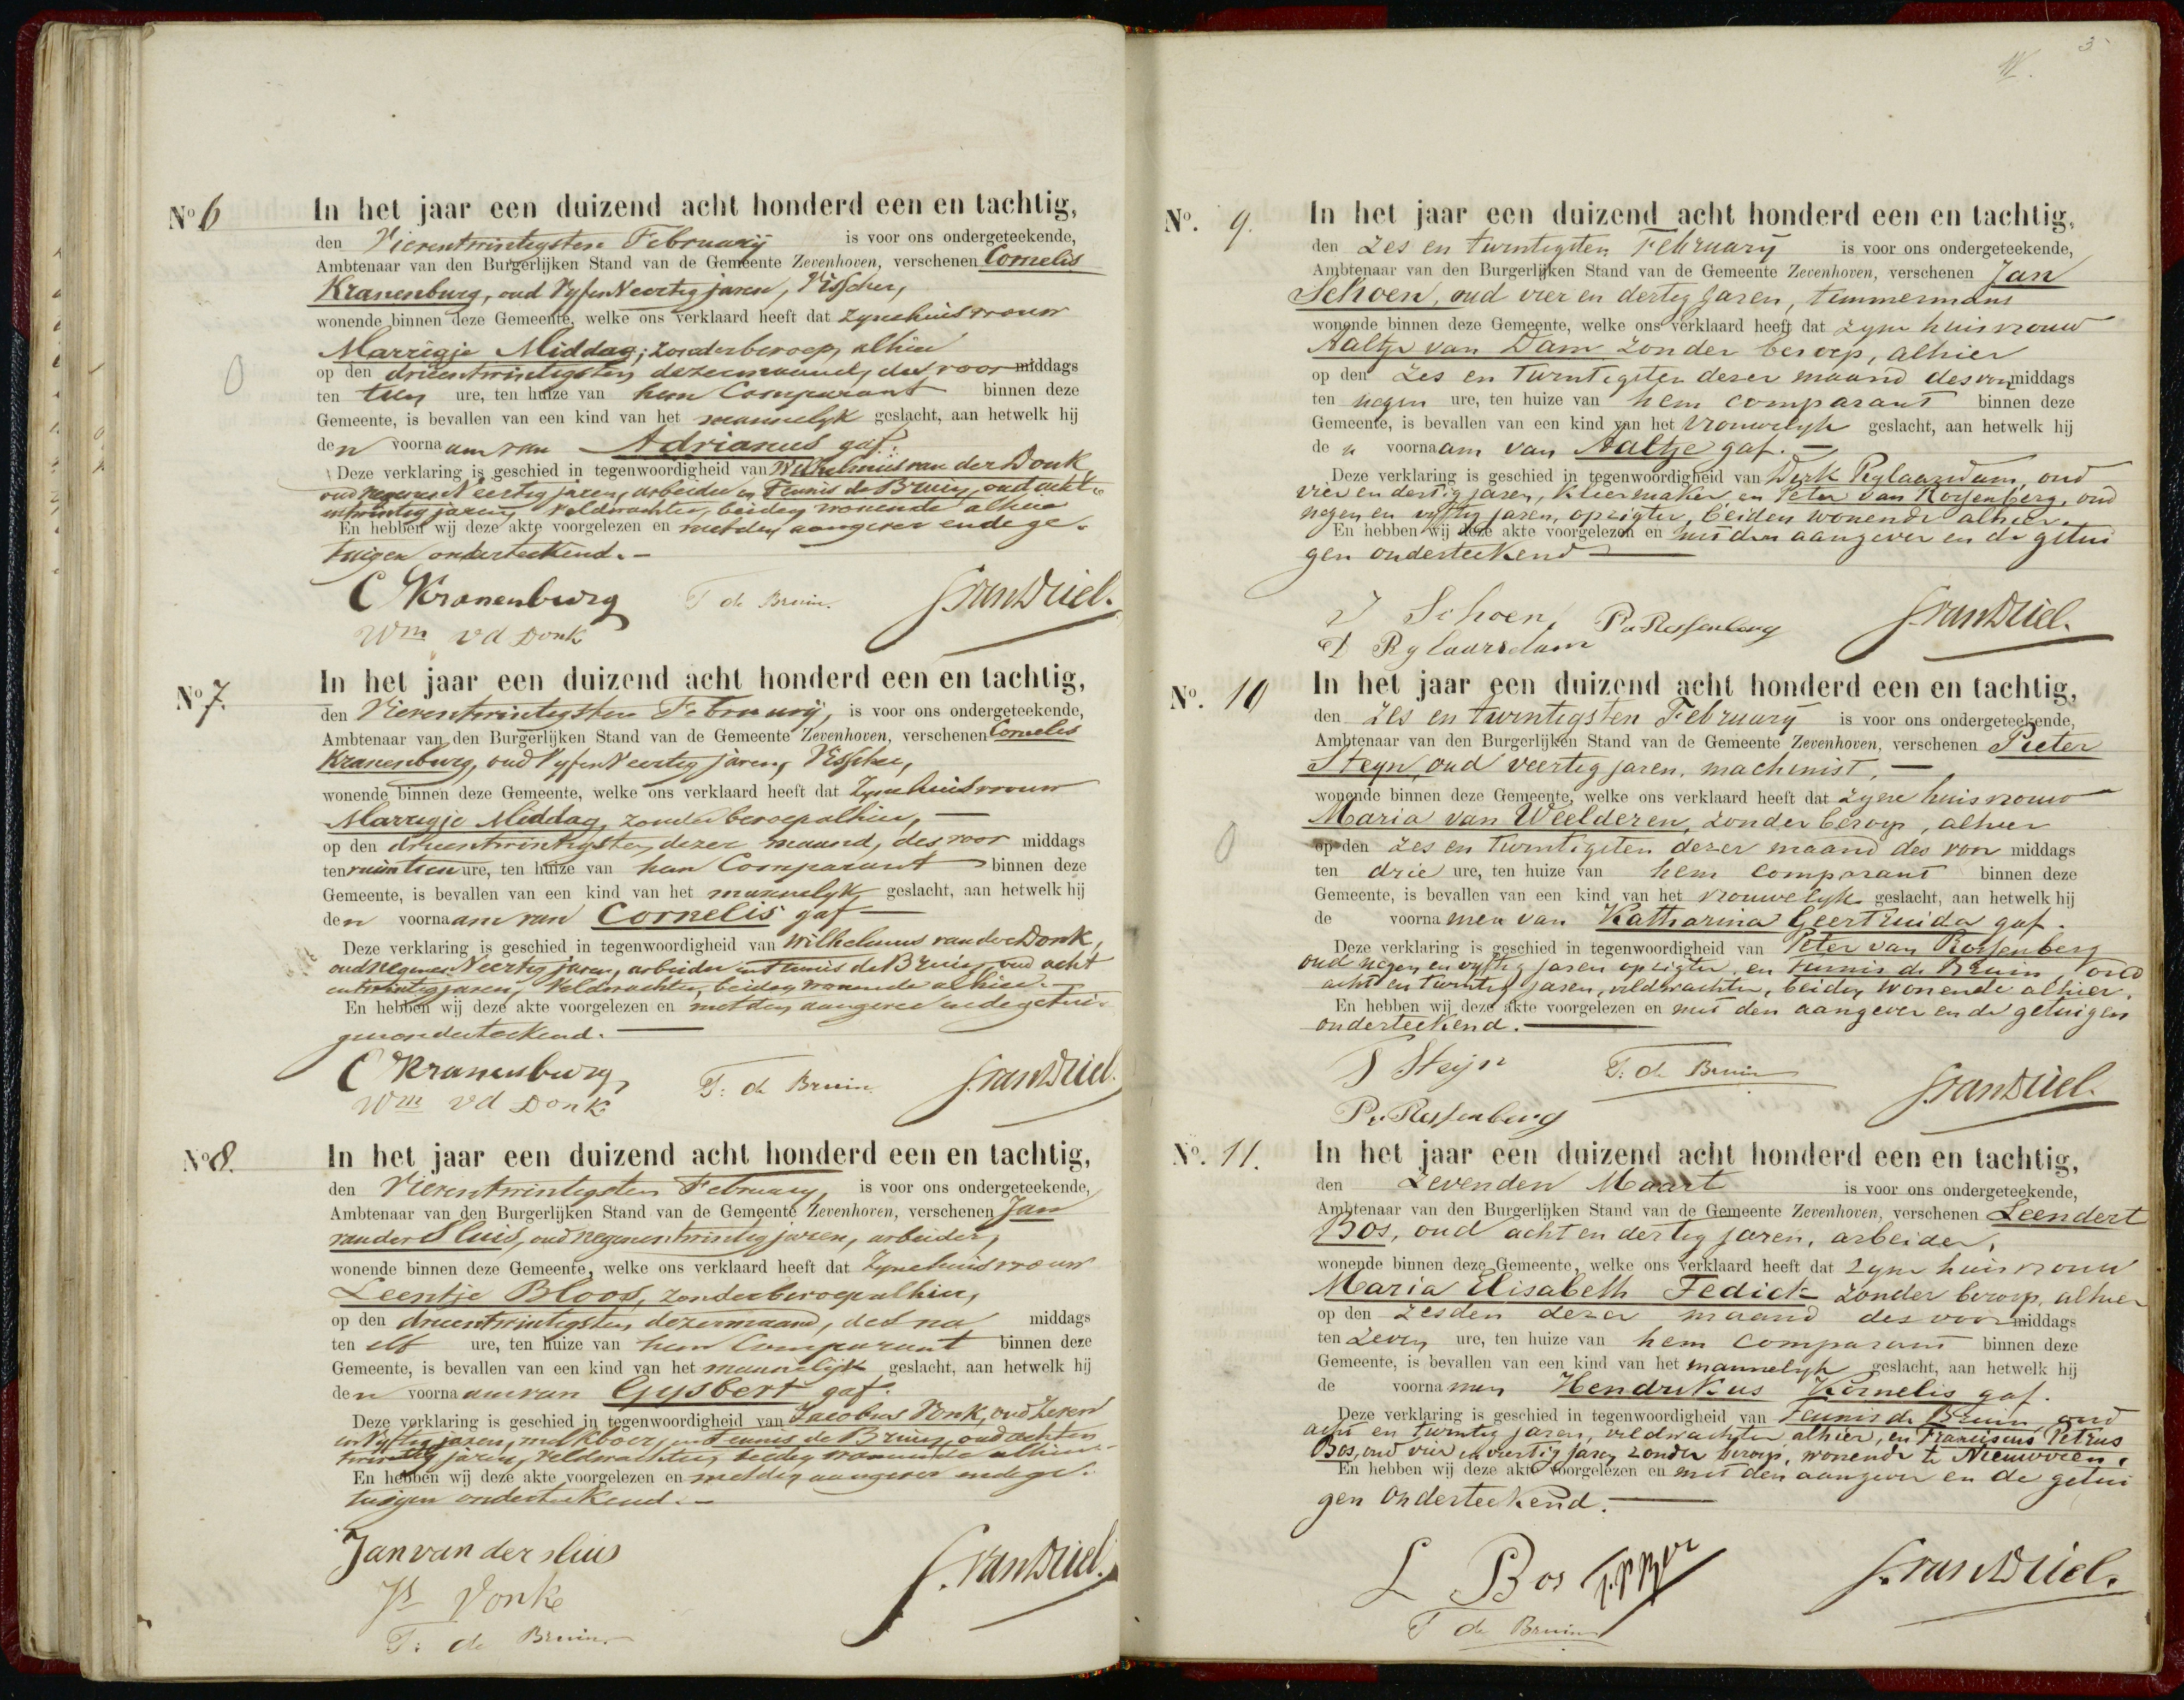 No 6
In het jaar een duizend acht honderd een en tachtig,
den Vierentwintigsten Februarij is voor ons ondergeteekende,
Ambtenaar van den Burgerlijken Stand van de Gemeente Zevenhoven, verschenen Cornelis
Kranenburg, oud Vyfenveertig jaren, Visscher,
wonende binnen deze Gemeente, welke ons verklaard heeft dat zyne huisvrouw
Marrigje Middag, zonder beroep, alhier
op den drieentwintigsten dezer maand, des voor middags
ten tien ure, ten huize van hem Comparant binnen deze
Gemeente, is bevallen van een kind van het mannelyk geslacht, aan hetwelk hij
den voornaam van Adrianus gaf.
Deze verklaring is geschied in tegenwoordigheid van Wilhelmus van der Donk,
oud negenenveertig jaren, arbeider en Teunis de Bruin, oud acht
entwintig jaren, Veldwachter, beiden wonende alhier
En hebben wij deze akte voorgelezen en met den aangever en de ge-
tuigen onderteekend. -
C Kranenburg T de Bruin. J. van Driel.
Wm vd Donk
No 7.
In het jaar een duizend acht honderd een en tachtig,
den Vierentwintigsten Februarij, is voor ons ondergeteekende,
Ambtenaar van den Burgerlijken Stand van de Gemeente Zevenhoven, verschenen Cornelis
Kranenburg, oud Vyfenveertig jaren, Visscher,
wonende binnen deze Gemeente, welke ons verklaard heeft dat Zyne huisvrouw
Marrigje Middag, zonder beroep alhier, -
op den drieentwintigsten dezer maand, des voor middags
ten ruim tien ure, ten huize van hem Comparant binnen deze
Gemeente, is bevallen van een kind van het mannelyk geslacht, aan hetwelk hij
den voornaam van Cornelis gaf -
Deze verklaring is geschied in tegenwoordigheid van Wilhelmus van der Donk,
oud negenenveertig jaren, arbeider en Teunis de Bruin, oud acht
entwintig jaren, Veldwachter, beiden wonende alhier. -
En hebben wij deze akte voorgelezen en met den aangever en de getui-
gen onderteekend. -
C Kranenburg T: de Bruin. J. van Driel.
Wm vd Donk
No 8.
In het jaar een duizend acht honderd een en tachtig,
den Vierentwintigsten February, is voor ons ondergeteekende,
Ambtenaar van den Burgerlijken Stand van de Gemeente Zevenhoven, verschenen Jan
van der Sluis, oud negenentwintig jaren, arbeider,
wonende binnen deze Gemeente, welke ons verklaard heeft dat Zyne huisvrouw
Leentje Bloos, zonder beroep alhier,
op den drieentwintigsten dezer maand, des na middags
ten elf ure, ten huize van hem Comparant binnen deze
Gemeente, is bevallen van een kind van het mannelijk geslacht, aan hetwelk hij
den voornaam van Gysbert gaf.
Deze verklaring is geschied in tegenwoordigheid van Jacobus Vonk, oud Zeven
en Vyftig jaren, melkboer, en Teunis de Bruin, oud achten
twintig jaren, Veldwachter, beiden wonende alhier. -
En hebben wij deze akte voorgelezen en met den aangever en de ge-
tuigen onderteekend. -
Jan van der sluis J. van Driel.
Js Vonk
T: de Bruin.
3
No. 9.
In het jaar een duizend acht honderd een en tachtig,
den zes en twintigsten February is voor ons ondergeteekende,
Ambtenaar van den Burgerlijken Stand van de Gemeente Zevenhoven, verschenen Jan
Schoen, oud vier en dertig jaren, timmerman
wonende binnen deze Gemeente, welke ons verklaard heeft dat zyne huisvrouw
Aaltje van Dam zonder beroep, alhier
op den zes en twintigsten dezer maand des voormiddags
ten negen ure, ten huize van hem comparant binnen deze
Gemeente, is bevallen van een kind van het vrouwelyk geslacht, aan hetwelk hij
den voornaam van Aaltje gaf. -
Deze verklaring is geschied in tegenwoordigheid van Dirk Rylaarsdam, oud
vier en dertig jaren, kleermaker en Peter van Rossenberg, oud
negen en vyftig jaren, opzigter, beiden wonende alhier.
En hebben wij deze akte voorgelezen en met den aangever en de getui
gen onderteekend -
J Schoen, P v Rossenberg J. van Driel.
D Rylaarsdam
No. 10
In het jaar een duizend acht honderd een en tachtig,
den zes en twintigsten February is voor ons ondergeteekende,
Ambtenaar van den Burgerlijken Stand van de Gemeente Zevenhoven, verschenen Pieter
Steyn, oud veertig jaren, machinist, -
wonende binnen deze Gemeente, welke ons verklaard heeft dat zyne huisvrouw
Maria van Weelderen, zonder beroep, alhier
op den zes en twintigsten dezer maand des voor middags
ten drie ure, ten huize van hem comparant binnen deze
Gemeente, is bevallen van een kind van het vrouwelyk geslacht, aan hetwelk hij
de voornamen van Katharina Geertruida gaf.
Deze verklaring is geschied in tegenwoordigheid van Peter van Rossenberg
oud negen en vyftig jaren opzigter, en Teunis de Bruin, oud
acht en twintig jaren, veldwachter, beiden wonende alhier.
En hebben wij deze akte voorgelezen en met den aangever en de getuigen
onderteekend. -
P Steijn T: de Bruin J. van Driel.
P. v. Rossenberg
No. 11.
In het jaar een duizend acht honderd een en tachtig,
den Zevenden Maart is voor ons ondergeteekende,
Ambtenaar van den Burgerlijken Stand van de Gemeente Zevenhoven, verschenen Leendert
Bos, oud acht en dertig jaren, arbeider,
wonende binnen deze Gemeente, welke ons verklaard heeft dat zyne huisvrouw
Maria Elisabeth Fedick zonder beroep, alhier
op den zesden dezer maand des voor middags
ten zeven ure, ten huize van hem comparant binnen deze
Gemeente, is bevallen van een kind van het mannelyk geslacht, aan hetwelk hij
de voornamen Hendrikus Kornelis gaf.
Deze verklaring is geschied in tegenwoordigheid van Teunis de Bruin, oud
acht en twintig jaren, veldwachter alhier, en Franciscus Petrus
Bos, oud vier en veertig jaren zonder beroep, wonende te Nieuwveen.
En hebben wij deze akte voorgelezen en met den aangever en de getui
gen onderteekend. -
L Bos F.P. Bos J. van Driel.
T de Bruin